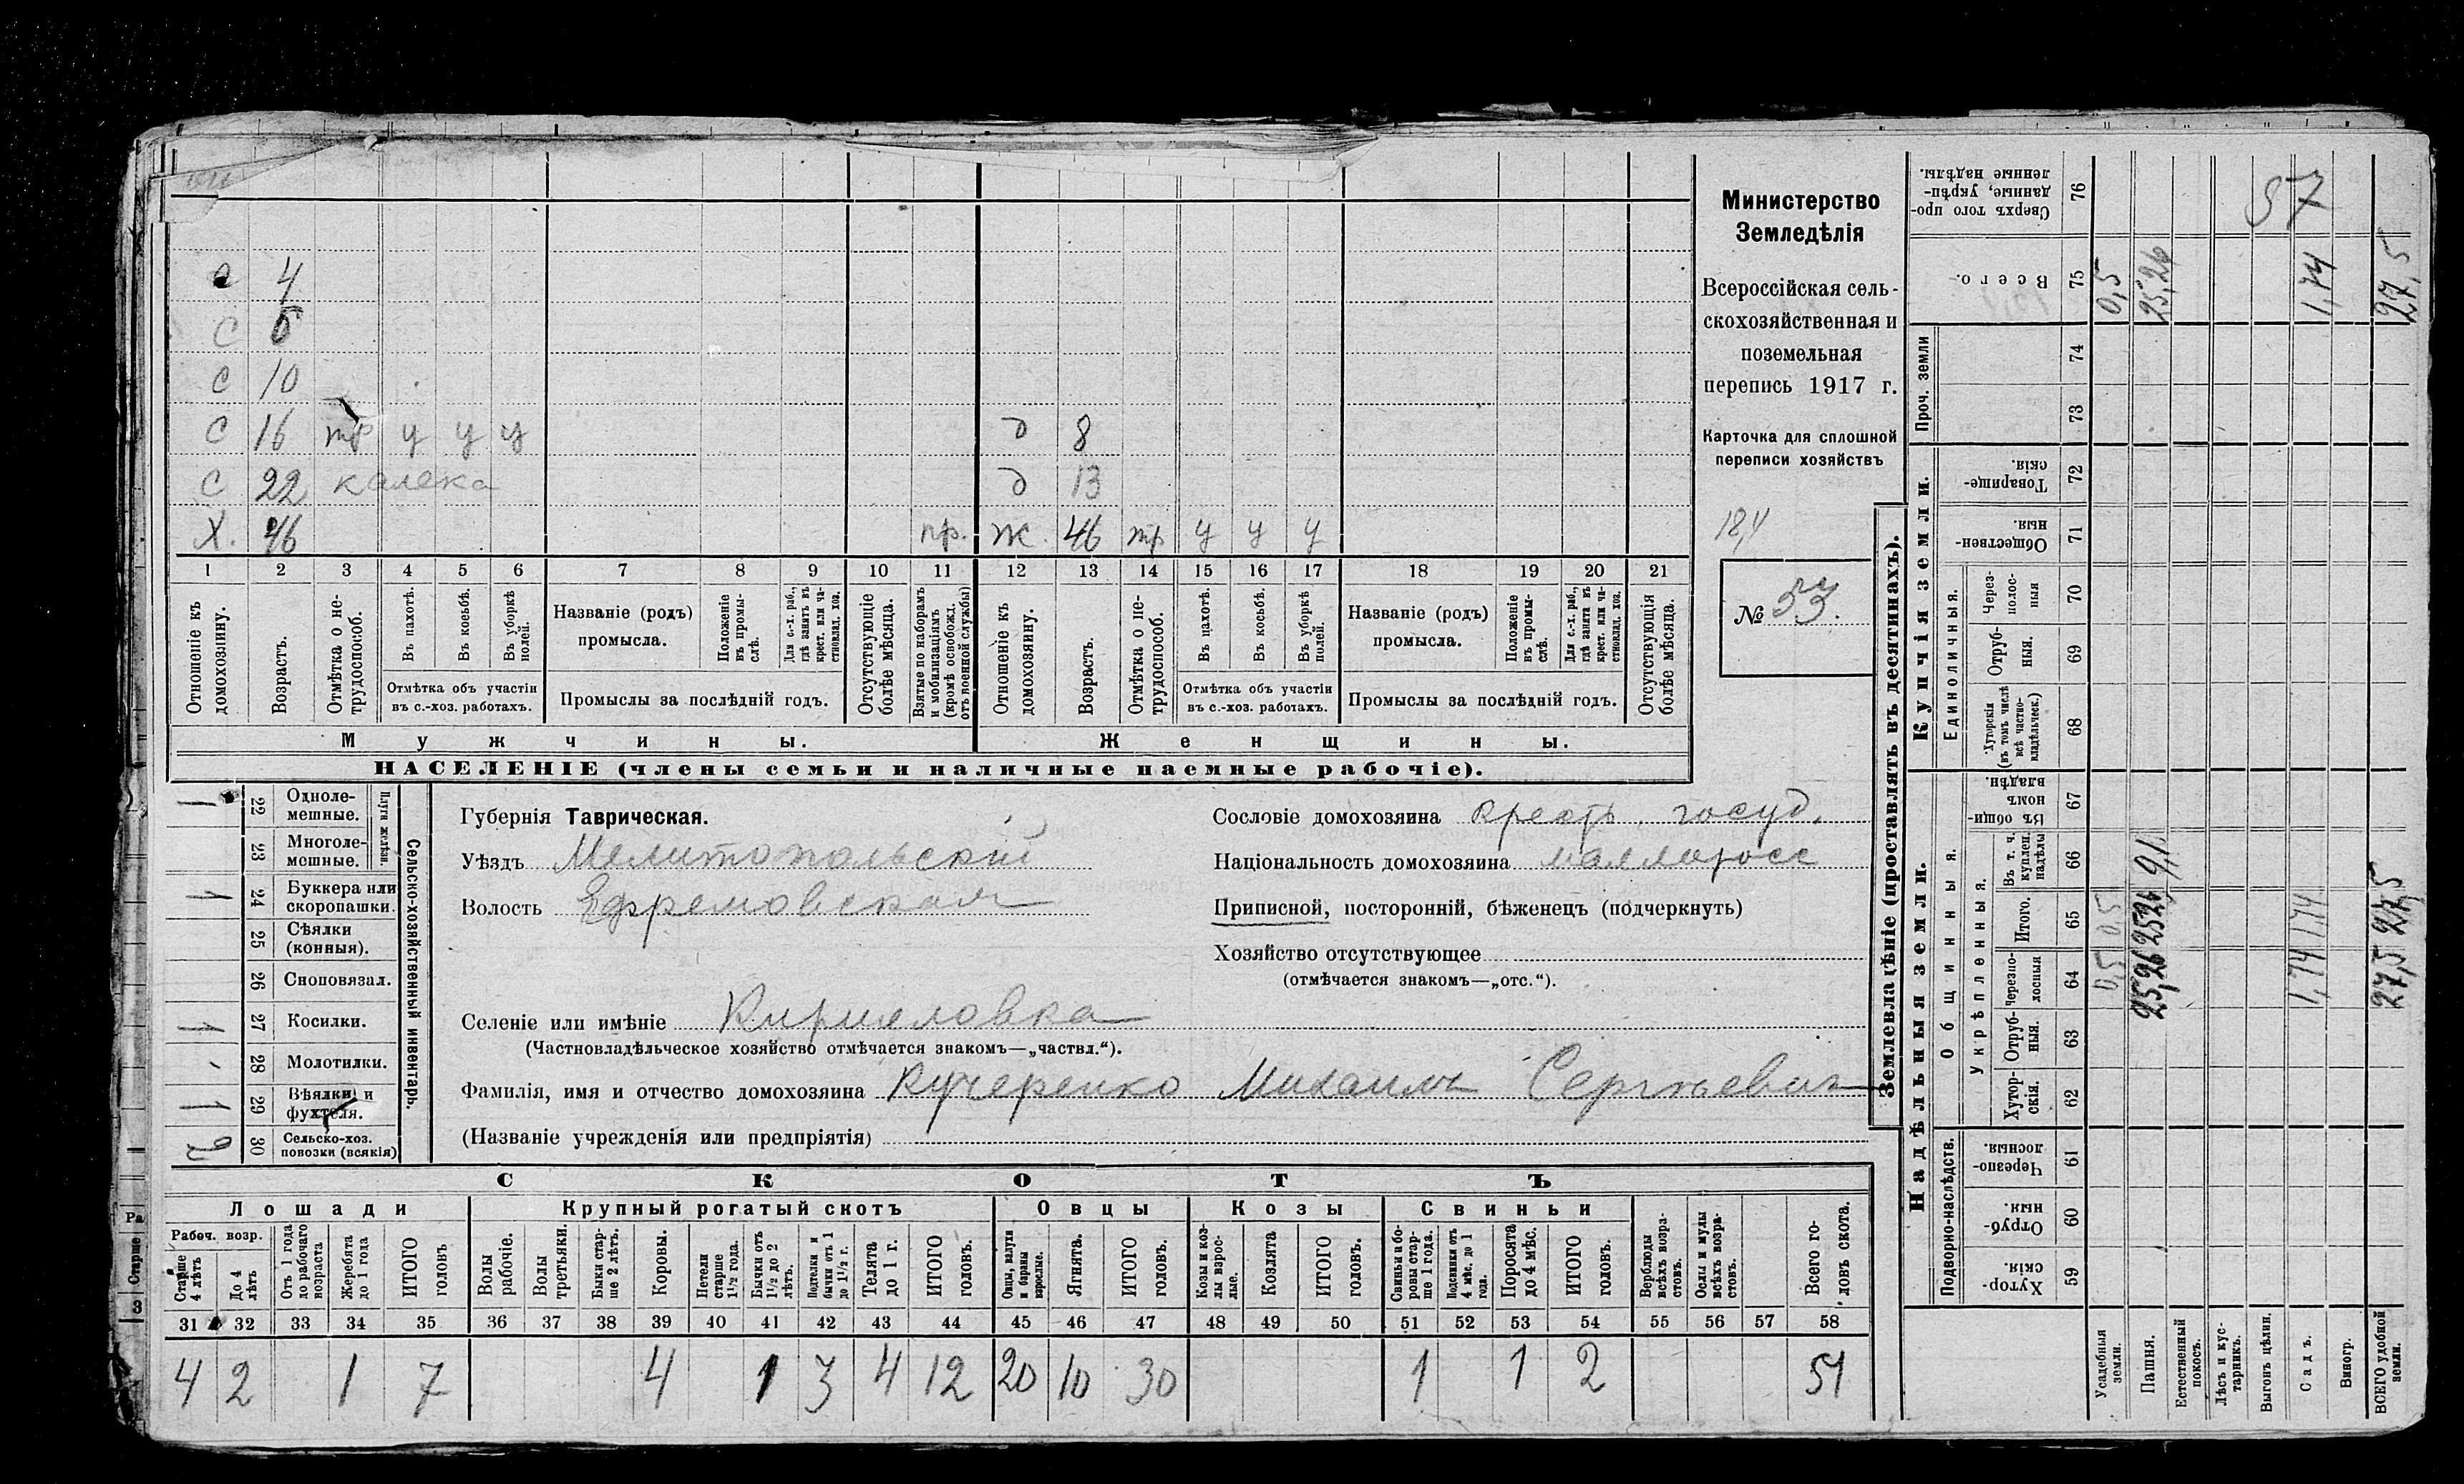 с 4
с 6
с 10
с 16 тр у у у д 8
с 22 калека д 13
Х. 46 пр. ж. 46 тр у у у
1 2 3 4 5 6 7 8 9 10 11 12 13 14 15 16 17 18 19 20 21
Отношеніе къ домохозяину.
Возрастъ.
Отмѣтка о не-трудоспособ.
Въ пахотѣ.
Въ косьбѣ.
Въ уборкѣ полей.
Отмѣтка объ участіи
въ с.-хоз. работахъ.
Названіе (родъ)
промысла.
Положеніе въ промы-слѣ.
Для с.-х. раб., гдѣ занятъ въ крест. или ча-стновлад. хоз.
Промыслы за послѣдній годъ.
Отсутствующіе болѣе мѣсяца.
Взятые по наборамъ и мобилизаціямъ (кромѣ освобожд. отъ военной службы)
Отношеніе къ домохозяину.
Возрастъ.
Отмѣтка о не-трудоспособ.
Въ пахотѣ.
Въ косьбѣ.
Въ уборкѣ полей.
Отмѣтка объ участіи
въ с.-хоз. работахъ.
Названіе (родъ)
промысла.
Положеніе въ промы-слѣ.
Для с.-х. раб., гдѣ занята въ крест. или ча-стновлад. хоз.
Промыслы за послѣдній годъ.
Отсутствующія болѣе мѣсяца.
Мужчины. Женщины.
НАСЕЛЕНІЕ (члены семьи и наличные наемные рабочіе).
Министерство
Земледѣлія
Всероссійская сель-
скохозяйственная и
поземельная
перепись 1917 г.
Карточка для сплошной
переписи хозяйствъ
№ 53.
Сельско-хозяйственный инвентарь.
Плуги желѣзн.
1 22 Одноле-мешные.
23 Многоле-мешные.
1 24 Буккера или скоропашки.
25 Сѣялки (конныя).
26 Сноповязал.
1 27 Косилки.
28 Молотилки.
1 29 Вѣялки и фухтеля.
2 30 Сельско-хоз. повозки (всякія)
Губернія Таврическая.
Уѣздъ Мелитопольскій
Волость Ефремовская
Селеніе или имѣніе Кирилловка
(Частновладѣльческое хозяйство отмѣчается знакомъ—„частвл.“).
Фамилія, имя и отчество домохозяина Кучеренко Михаилъ Сергѣевич
(Названіе учрежденія или предпріятія)
Сословіе домохозяина крест. госуд.
Національность домохозяина маллоросс
Приписной, посторонній, бѣженецъ (подчеркнуть)
Хозяйство отсутствующее
(отмѣчается знакомъ—„отс.“).
СКОТЪ
Лошади Крупный рогатый скотъ Овцы Козы Свиньи
Рабоч. возр.
Старше 4 лѣтъ
До 4 лѣтъ
Отъ 1 года до рабочаго возраста
Жеребята до 1 года
ИТОГО головъ
Волы рабочіе.
Волы третьяки.
Быки стар-ше 2 лѣтъ.
Коровы.
Нетели старше 1½ года.
Бычки отъ 1½ до 2 лѣтъ.
Подтелки и бычки отъ 1 до 1½ г.
Телята до 1 г.
ИТОГО головъ.
Овцы, валухи и бараны взрослые.
Ягнята.
ИТОГО головъ.
Козы и коз-лы взрос-лые.
Козлята
ИТОГО головъ.
Свиньи и бо-ровы стар-ше 1 года.
Подсвинки отъ 4 мѣс. до 1 года.
Поросята до 4 мѣс.
ИТОГО головъ.
Верблюды всѣхъ возра-стовъ.
Ослы и мулы всѣхъ возра-стовъ.
Всего го-ловъ скота.
31 32 33 34 35 36 37 38 39 40 41 42 43 44 45 46 47 48 49 50 51 52 53 54 55 56 57 58
4 2 1 7 4 1 3 4 12 20 10 30 1 1 2 51
Землевладѣніе (проставлять въ десятинахъ).
Надѣльныя земли. Купчія земли.
Подворно-наслѣдств.
Общинныя.
Укрѣпленныя.
Единоличныя.
Проч. земли
Хутор-скія. 59
Отруб-ныя. 60
Черезпо-лосныя. 61
Хутор-скія. 62
Отруб-ныя. 63
Черезпо-лосныя 64
Итого. 65
Въ т. ч. куплен. надѣлы 66
Въ общин-номъ владѣн. 67
Хуторскія (въ томъ числѣ всѣ частно-владѣльческ.) 68
Отруб-ныя. 69
Через-полос-ныя 70
Обществен-ныя. 71
Товарище-скія. 72
73
74
Всего. 75
Сверхъ того про-данные, укрѣп-ленные надѣлы. 76
Усадебныя земли. 0,5 0,5 0,5
Пашня. 25,26 25,26 9,1 25,26
Естественный покосъ.
Лѣсъ и кус-тарникъ.
Выгонъ цѣлин. 57
Садъ. 1,74 1,74 1,74
Виногр.
ВСЕГО удобной земли. 27,5 27,5 27,5
Ра
Старше
3